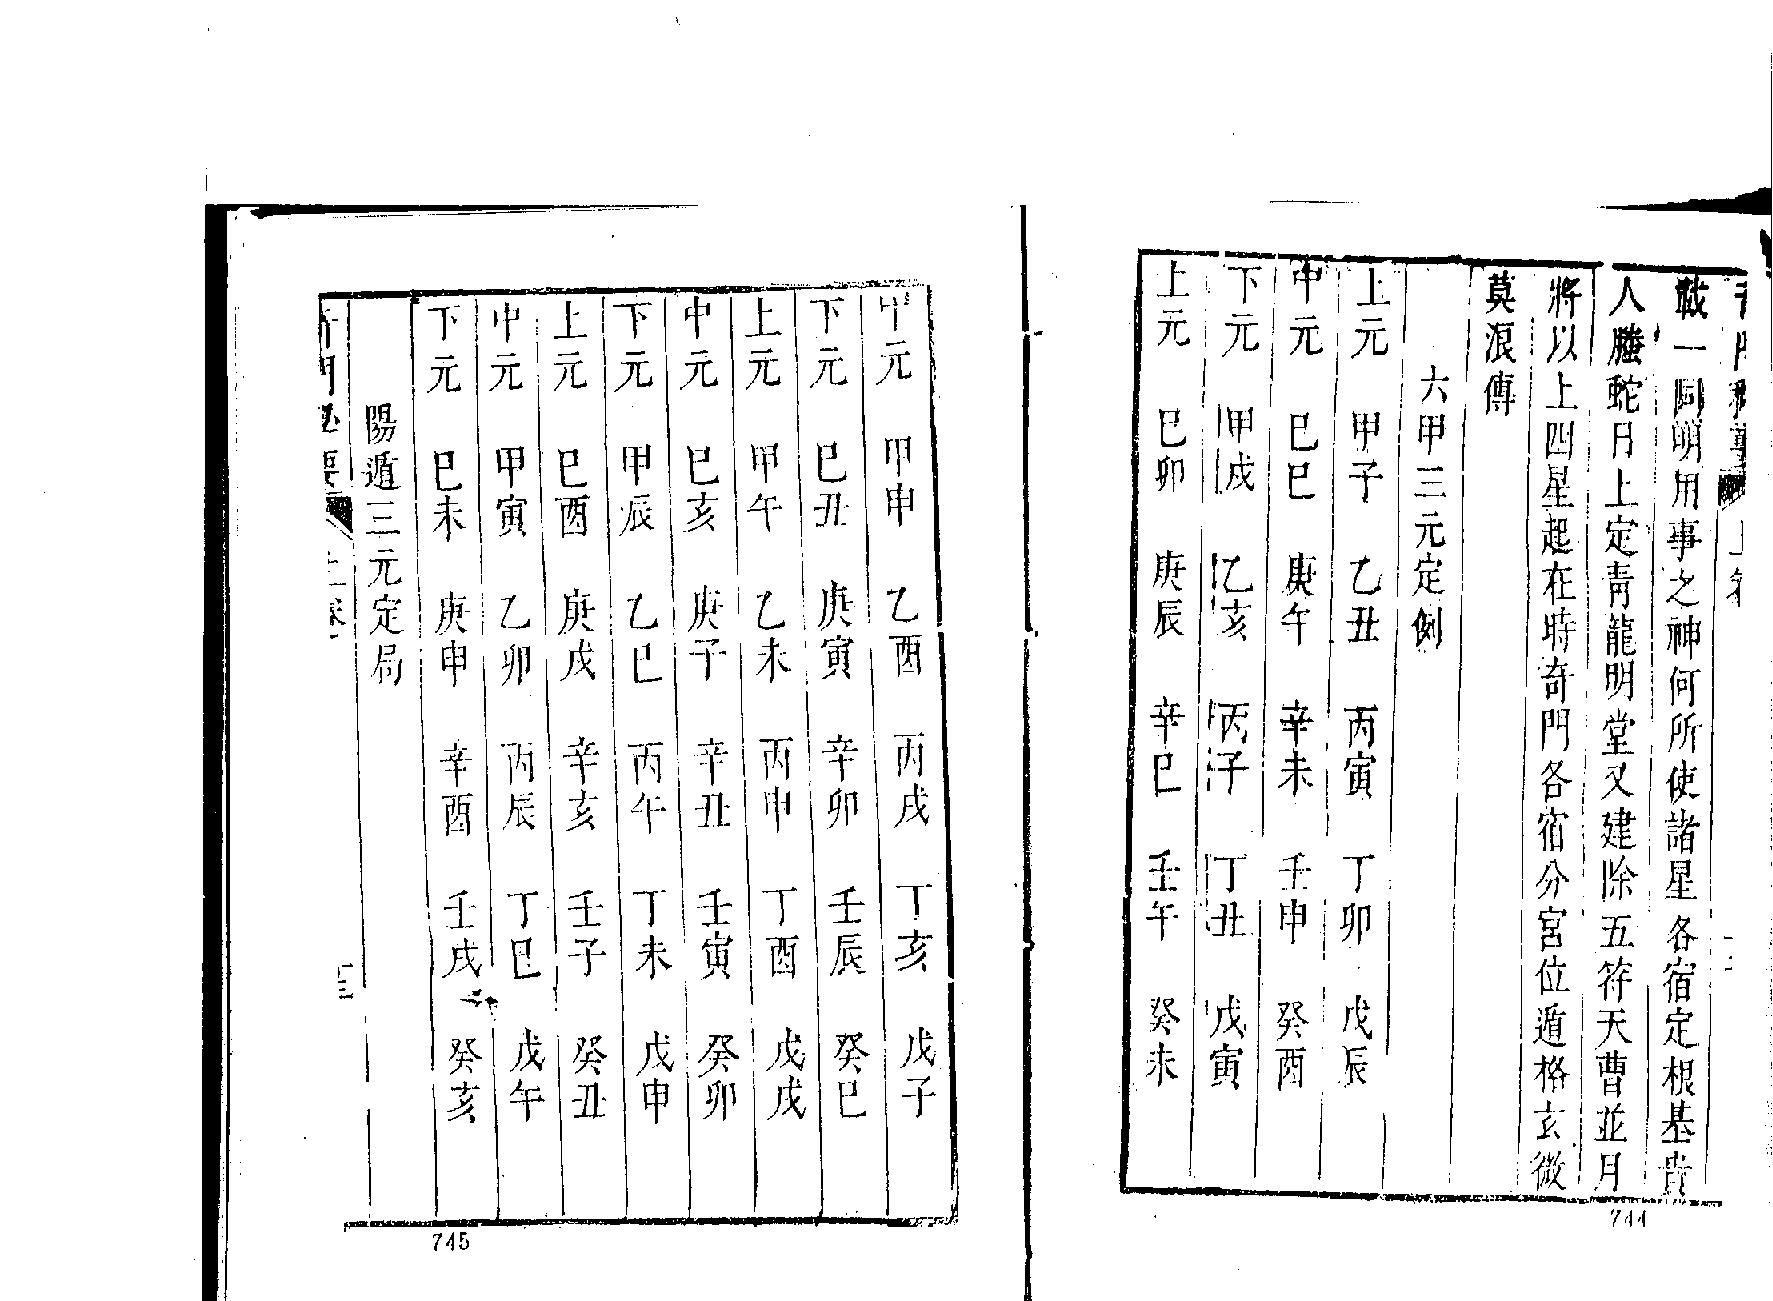 戢一同明用事之神何所使諸星各宿定根基貴
人螣蛇日上定青龍明堂又建除五符天曹並月
將以上四星起在時奇門各宿分宮位遁格玄微
莫浪傳
六甲三元定側
上元 甲子 乙丑 丙寅 丁卯 戊辰
中元 巳巳 庚午 辛未 壬申 癸酉
下元 甲戌 乙亥 丙子 丁丑 戊寅
上元 巳卯 庚辰 辛巳 壬午 癸未
744
中元 甲申 乙酉 丙戌 丁亥 戊子
下元 巳丑 庚寅 辛卯 壬辰 癸巳
上元 甲午 乙未 丙申 丁酉 戊戌
中元 巳亥 庚子 辛丑 壬寅 癸卯
下元 甲辰 乙巳 丙午 丁未 戊申
上元 巳酉 庚戌 辛亥 壬子 癸丑
中元 甲寅 乙卯 丙辰 丁巳 戊午
下元 巳未 庚申 辛酉 壬戌 癸亥
陽遁三元定局
745